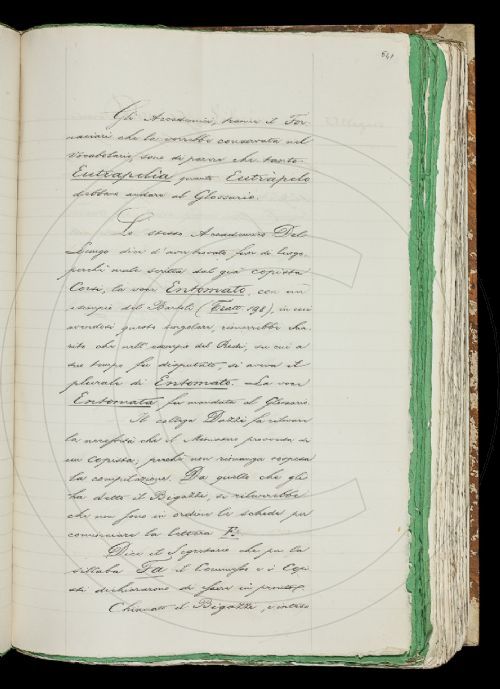 641
Gli Accademici, tranne il For-
naciari che la vorrebbe conservata nel
Vocabolario, sono di parere che tanto
Eutrapelia quanto Eutràpelo
debbano andare al Glossario.
Lo stesso Accademico Del
Lungo dice d'aver trovato fuor di luogo,
perchè male scritta dal già copista
Corsi, la voce Entomato, con un
esempio del Barfoli (Tratt. 198), in cui
avendosi questo singolare, rimarrebbe chia-
rito che nell'esempio del Redi, su cui a
suo tempo fu disputato, si aveva il
plurale di Entomato. La voce
Entomata fu mandata al Glossario.
Il collega Dazzi fa rilevare
la necessità che il Ministero provveda di
un copista, perchè non rimanga sospesa
la compilazione. Da quello che gli
ha detto il Bigazzi, si rileverebbe
che non sono in ordine le schede per
cominciare la lettera F.
Dice il Segretario che per la
sillaba Fa il Commesso e i Copi
sti dichiararono di essere in pronto.
Chiamato il Bigazzi, è inteso